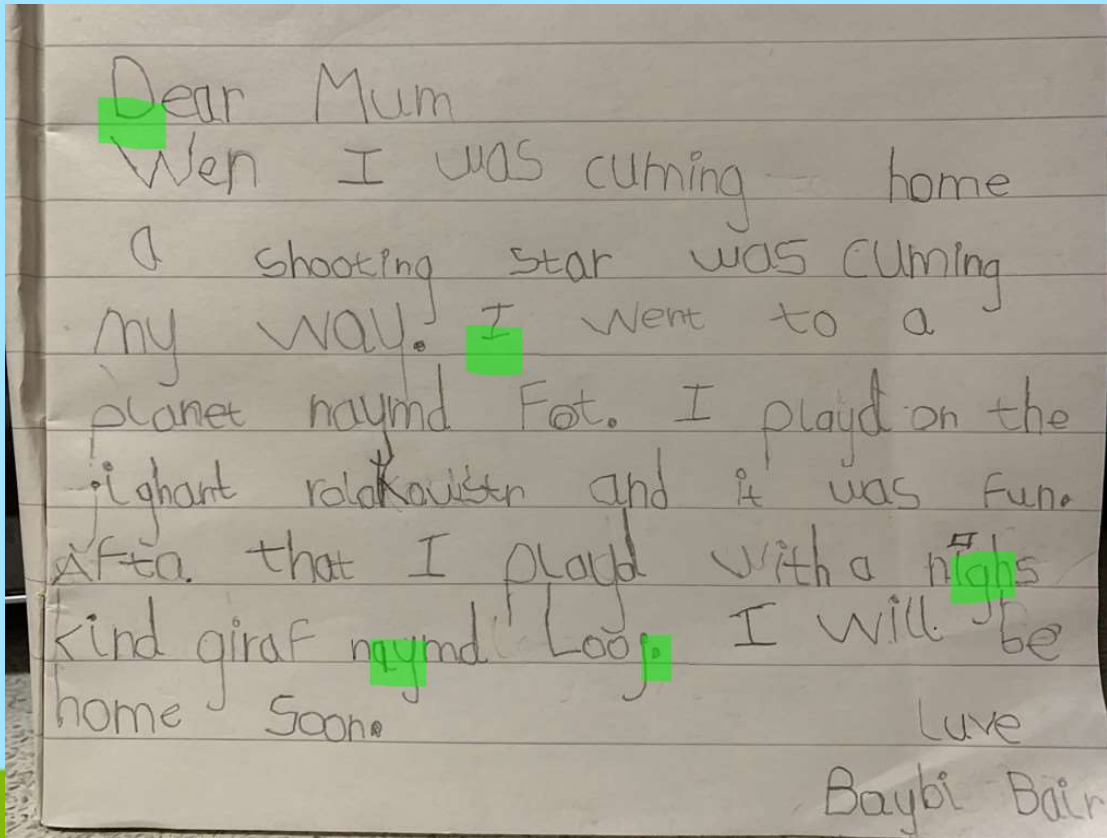 Dear Mum
Wen I was cuming home
a shooting star was cuming
my way. I went to a
planet naymd Fot. I playd on the
jighant rolakowstr and it was fun.
Afta that I playd with a nighs
kind giraf naymd Looj. I will be
home soon. Luve
Baybi Bair